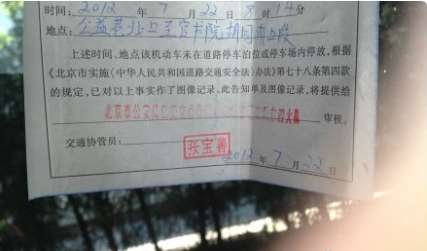 时间：2012年7月22日8时14分
地点：公益巷北口至官书院胡同西口段
上述时间、地点该机动车未在道路停车泊位或停车场内停放，根据
《北京市实施《中华人民共和国道路交通安全法》办法》第七十八条第四款
的规定，已对以上事实作了图像记录，此告知单及图像记录，将提供给
北京市公安局公安 大队 审核。
交通协管员：
张宝善
2012年7月22日